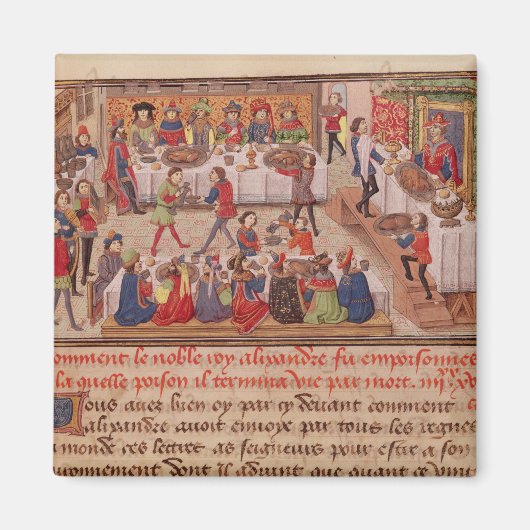 comment le noble roy alixandre fu empoisonne
la quelle poison il termina vie par mort. iiijxx
Vous avez bien oy par cy devant comment
alixandre avoit envoye par tous les regnes
monde ces lettres as seigneurs pour estre a son
couronnement dont il advint que quant ce vint